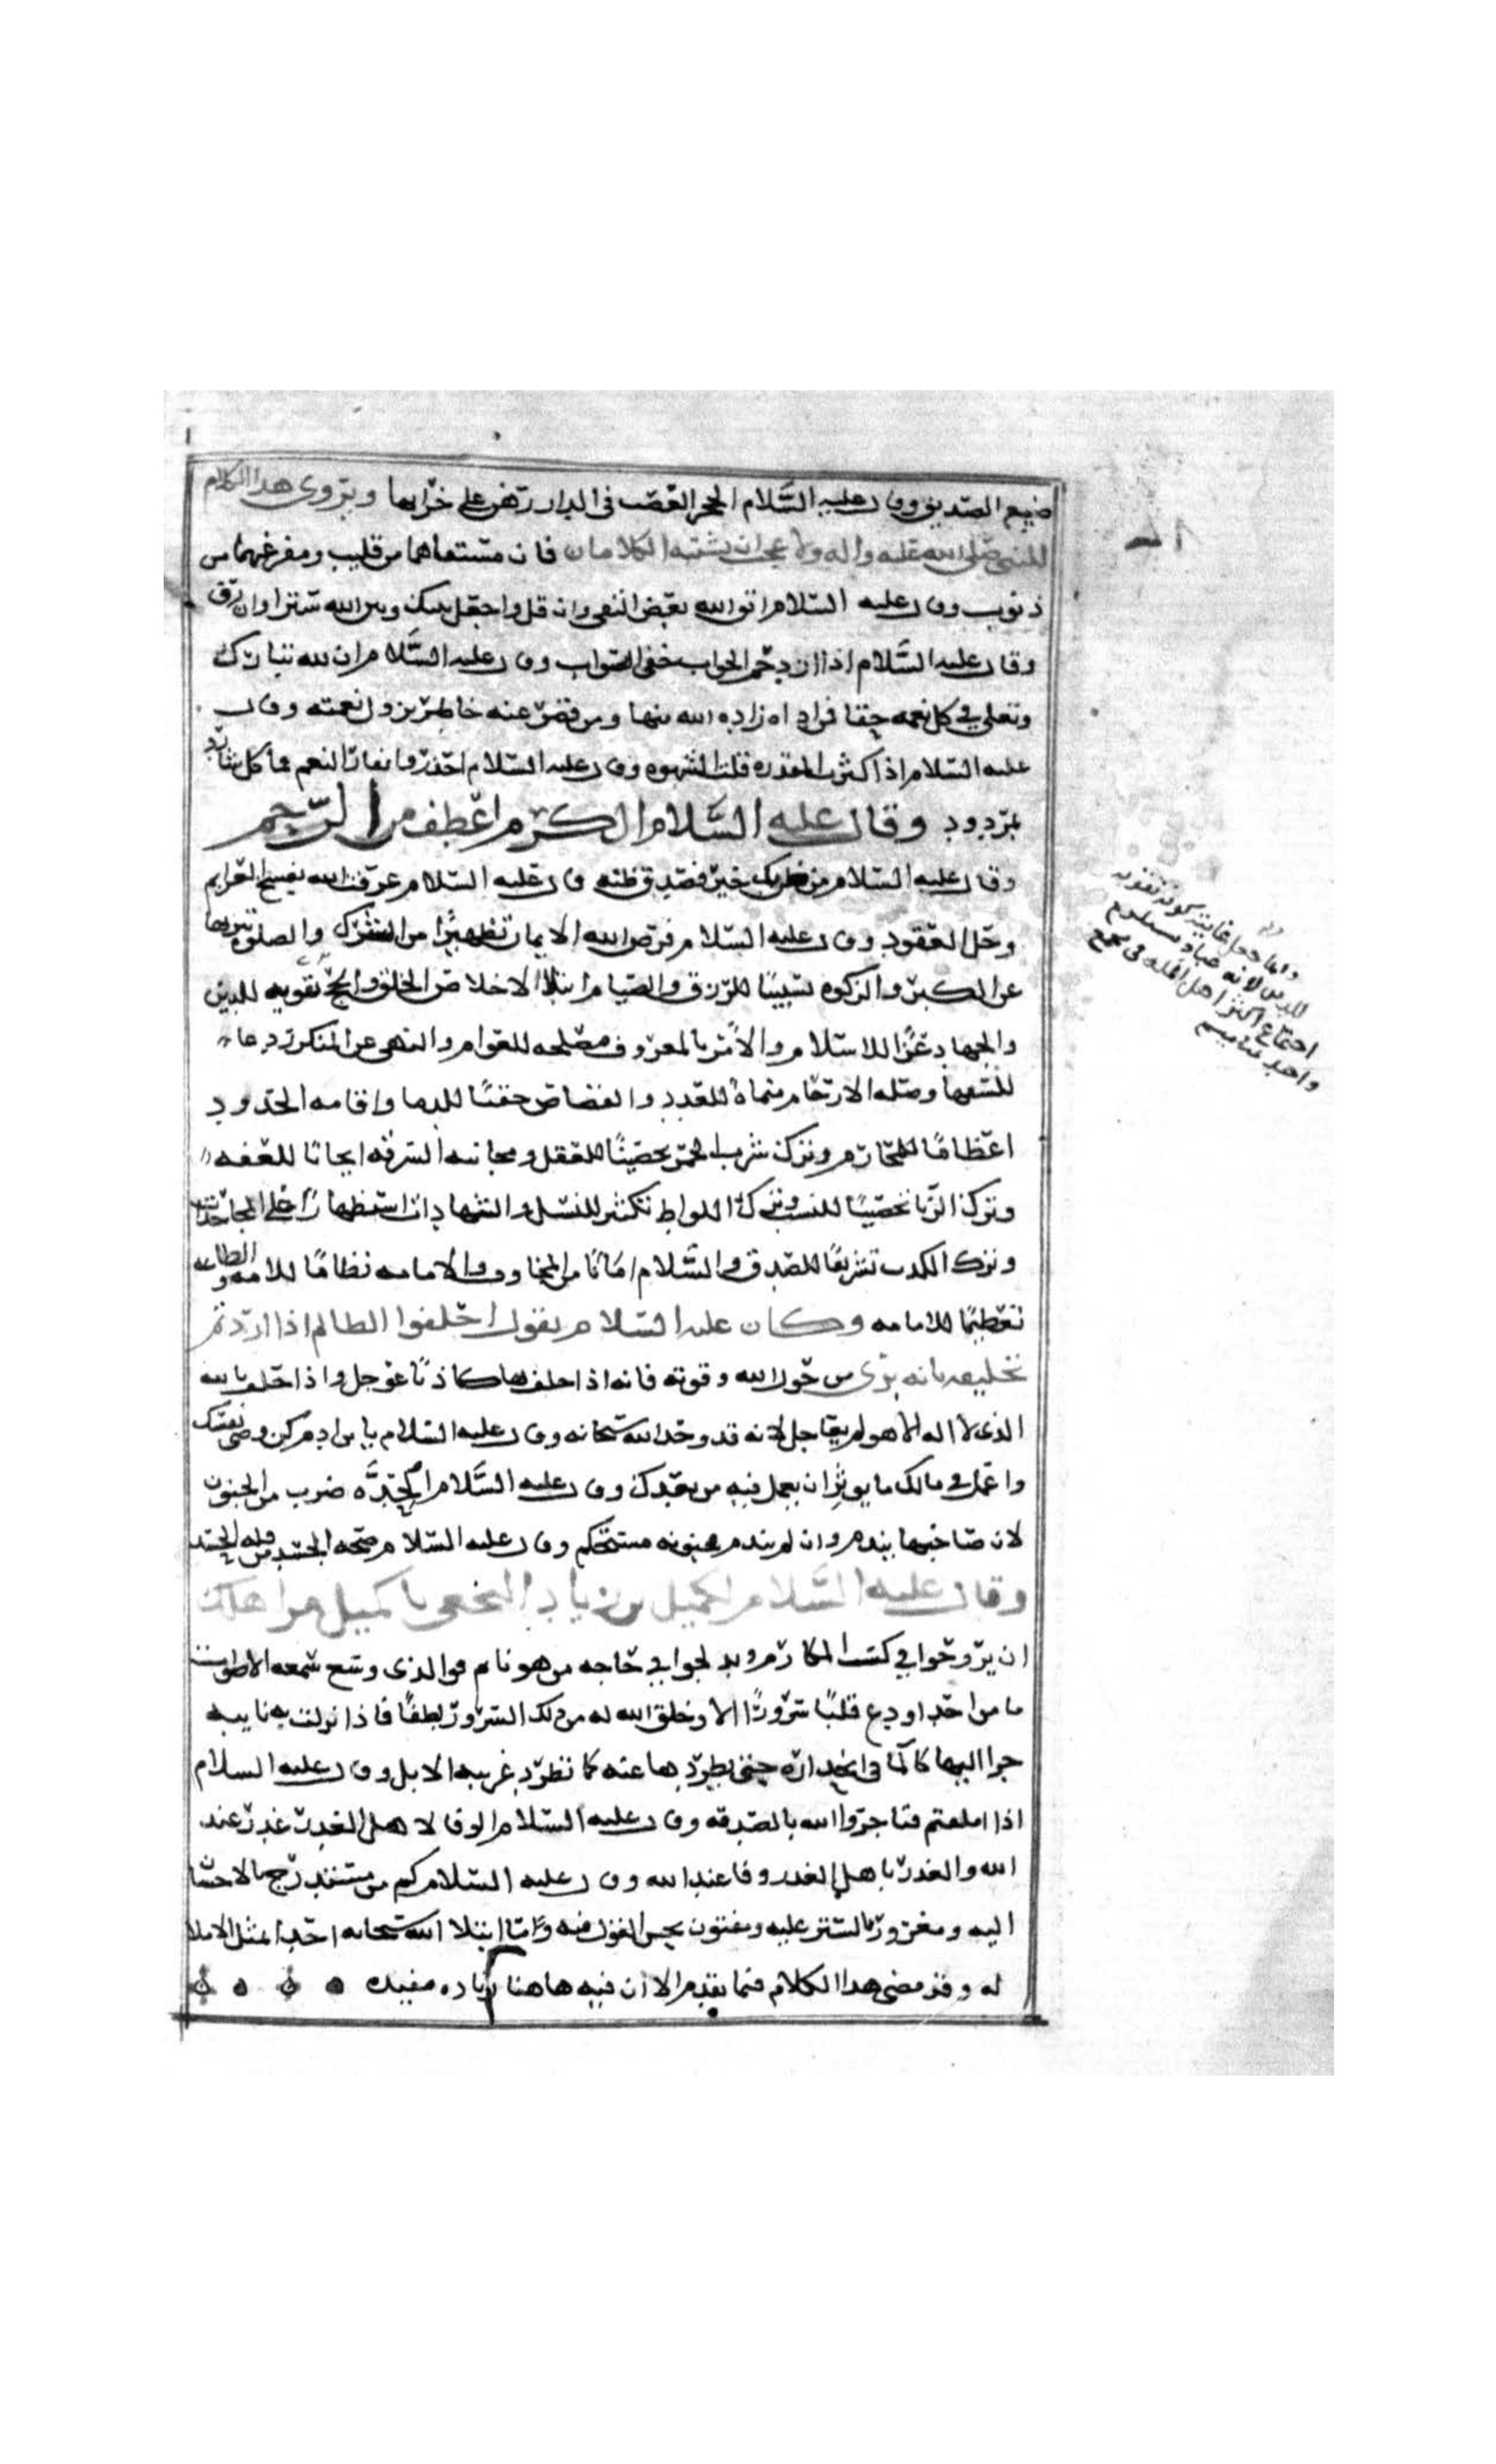 ضيع الصديق وقال عليه السّلام الحجر الغصب في الدار رهن على خرابها ويروى هدا الكلام
للنبي صلى الله عليه واله ولا عجب ان يشتبه الكلامان فان مستقاهما من قليب ومفرغهما من
ذنوب وقال عليه السّلام اتق الله بعض التقى وان قل واجعل بينك وبين الله سترا وان رق
وقال عليه السَّلام اذا ازدحم الجواب خفي الصواب وقال عليه السَّلام ان لله تبارك
وتعلى في كل نعمه حقا فمن اداه زاده الله منها ومن قصر عنه خاطر بزوال نعمته وقال
عليه السلام اذا كثرت المقدره قلت الشهوه وقال عليه السّلام احذروا نفار النعم فما كل شارد
بمردود وقال عليه السَّلام الكرم اعطف من الرّحم
وقال عليه السّلام من ظن بك خيرا فصدق ظنه وقال عليه السّلام عرفت الله بفسخ العزايم
وحل العقود وقال عليه السّلام فرض الله الايمان تطهيرًا من الشرك والصلوه تنزيها
عن الكبر والزكوه تسبيبًا للرزق والصيام ابتلا لاخلاص الخلق والحج تقويه للدين
والجهاد عزًا للاسلام والأمر بالمعروف مصلحه للعوام والنهي عن المنكر ردعا
للسفها وصله الارحام منماة للعدد والقصاص حقنًا للدما واقامه الحدود
اعظامًا للمحارم وترك شرب الخمر تحصينًا للعقل ومجانبه السرقه ايجابًا للعفه
وترك الزنا تحصينًا للنسب وترك اللواط تكثيرا للنسل والشهادات استظهارًا على المجاحدات
وترك الكدب تشريفًا للصدق والسَّلام امَانًا من المخاوف والامامه نظامًا للامه والطاعه
تعظيمًا للامامه وكان عليه السّلام يقول احلفوا الظالم اذا اردتم
تحليفه بانه بري من حول الله وقوته فانه اذا حلف بها كاذبًا عوجل واذا حلف بالله
الذي لا اله الا هو لم يعاجل لانه قد وحد الله سبحانه وقال عليه السّلام يا بن ادم كن وصي نفسك
واعمل في مالك ما يوثر ان يعمل فيه من بعدك وقال عليه السَّلام الحِدَّه ضرب من الجنون
لان صاحبها يندم وان لم يندم فجنونه مستحكم وقال عليه السّلام صحه الجسد من قله الحسد
وقال عليه السَّلام لكميل بن زياد النخعي يا كميل مر اهلك
ان يروحوا في كسب المكارم ويدلجوا في حاجه من هو نايم فوالذي وسع سمعه الاصوات
ما من احد اودع قلبًا سرورًا الا وخلق الله له من ذلك السرور لطفًا فاذا نزلت به نايبه
جرا اليها كالما في انحداره حتى يطردها عنه كما تطرد غريبه الابل وقال عليه السلام
اذا املقتم فتاجروا الله بالصدقه وقال عليه السّلام الوفا لاهل الغدر غدر عند
الله والغدر باهل الغدر وفا عند الله وقال عليه السّلام كم من مستدرج بالاحسان
اليه ومغرور بالستر عليه ومفتون بحسن القول فيه وما ابتلا الله سبحانه احدا بمثل الاملا
له وقد مضى هدا الكلام فيما تقدم الا ان فيه هاهنا زياده مفيده
وانما جعل غايته كونه تقويه
للدين لانه عباد
اجتماع اكثر اهل المله في مجمع
واحد